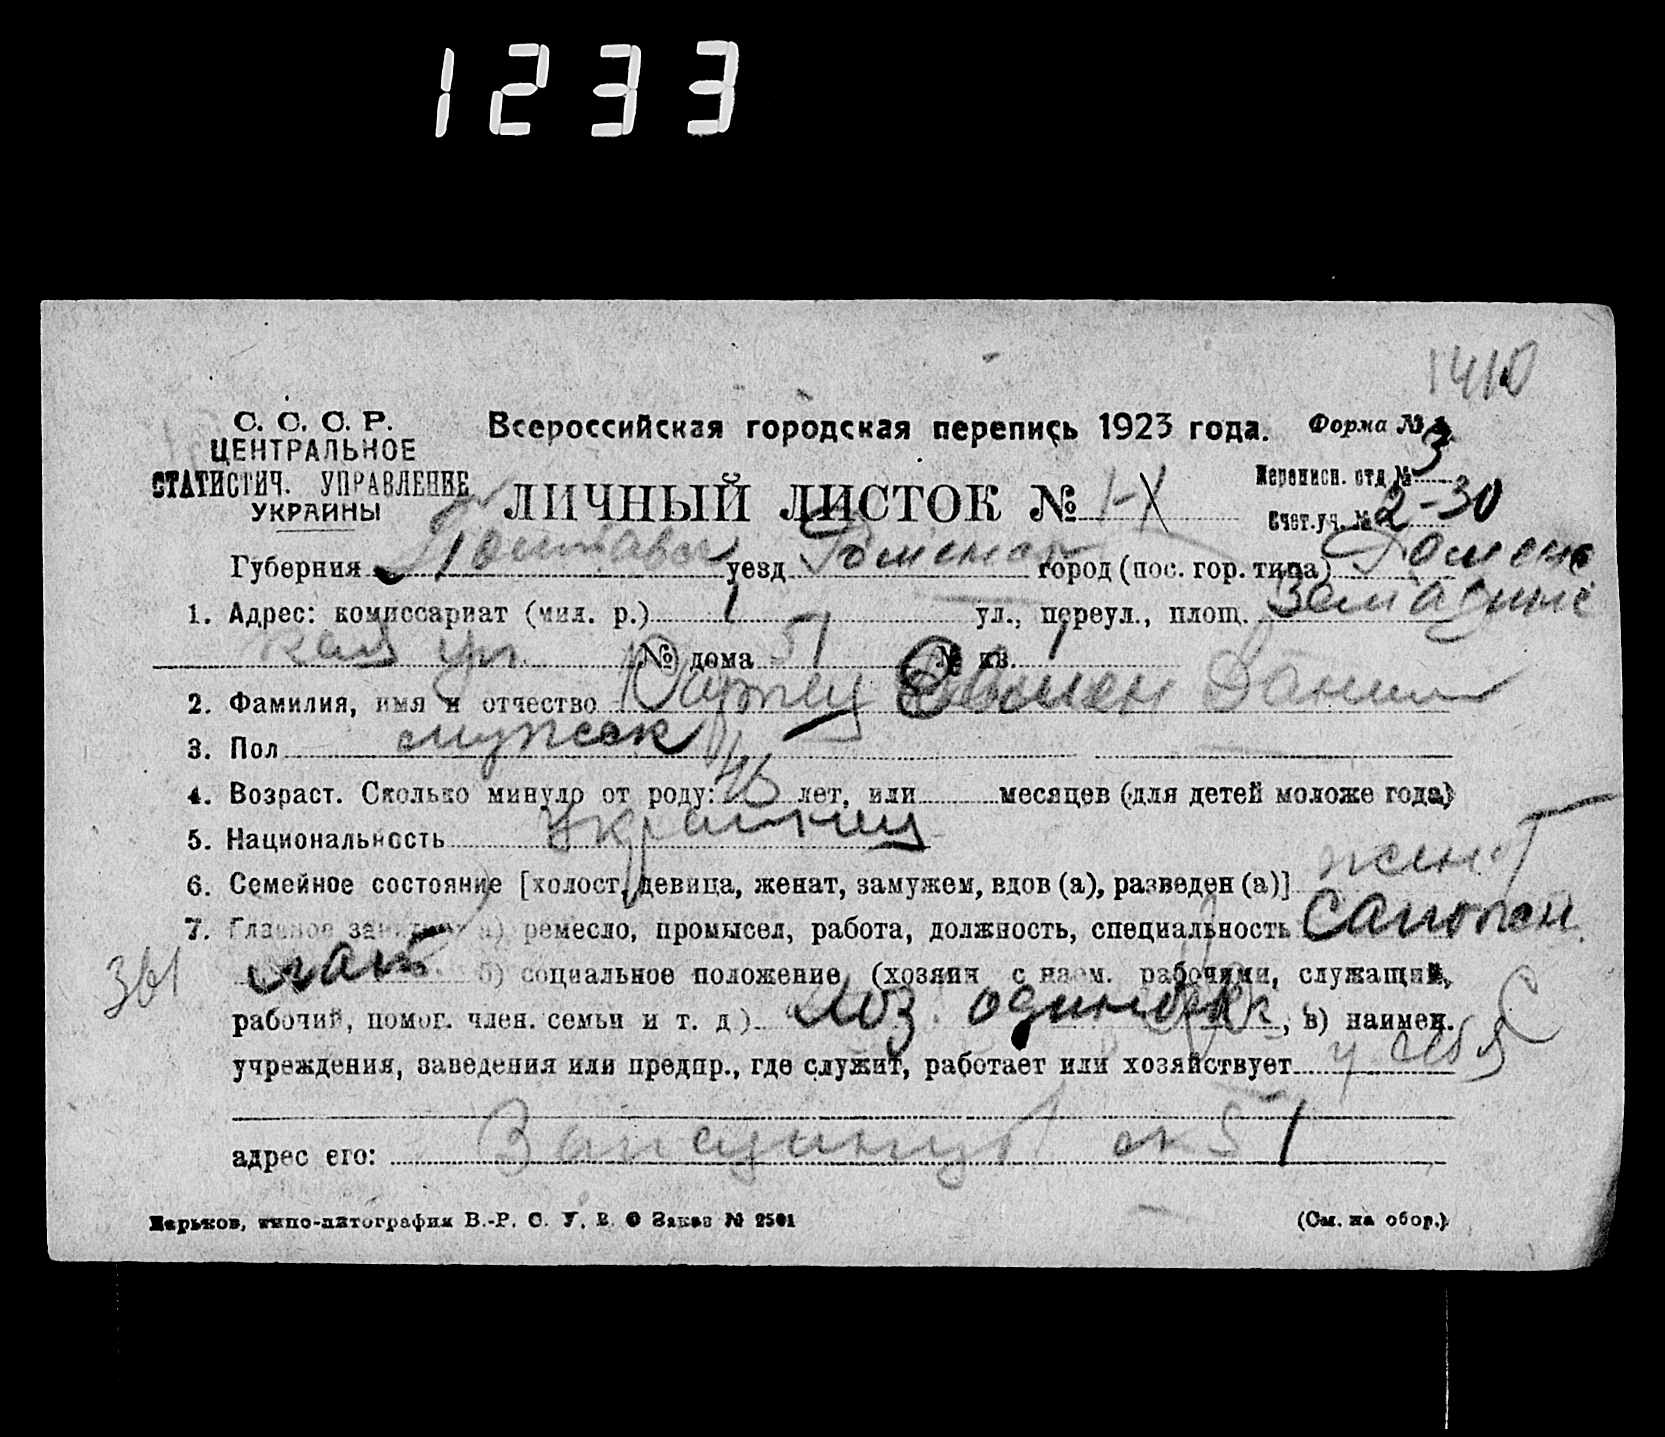 1233
1410
С. С. С. Р.
ЦЕНТРАЛЬНОЕ
СТАТИСТИЧ. УПРАВЛЕНИЕ
УКРАИНЫ
Всероссийская городская перепись 1923 года.
Форма № 3
ЛИЧНЫЙ ЛИСТОК № 1-X
Переписн. отд №
Счет.уч. № 2-30
Губерния Полтавск уезд Роменск город (пос. гор. типа) Ромень
1. Адрес: комиссариат (мил. р.) 1 ул., переул., площ.
кая ул. № дома 51 № кв. 1
2. Фамилия, имя и отчество Данил
3. Пол мужск
4. Возраст. Сколько минуло от роду: 46 лет, или месяцев (для детей моложе года)
5. Национальность Украинец
6. Семейное состояние [холост, девица, женат, замужем, вдов (а), разведен (а)] женат
7. Главное занятие: а) ремесло, промысел, работа, должность, специальность сапожн
361
б) социальное положение (хозяин с наем. рабочими, служащий,
рабочий, помог. член. семьи и т. д.) хоз. одиночка, в) наимен.
учреждения, заведения или предпр., где служит, работает или хозяйствует у себя
адрес его: 51
Харьков, типо-литография В.-Р. С. У. В. О Заказ № 2501
(См. на обор.)